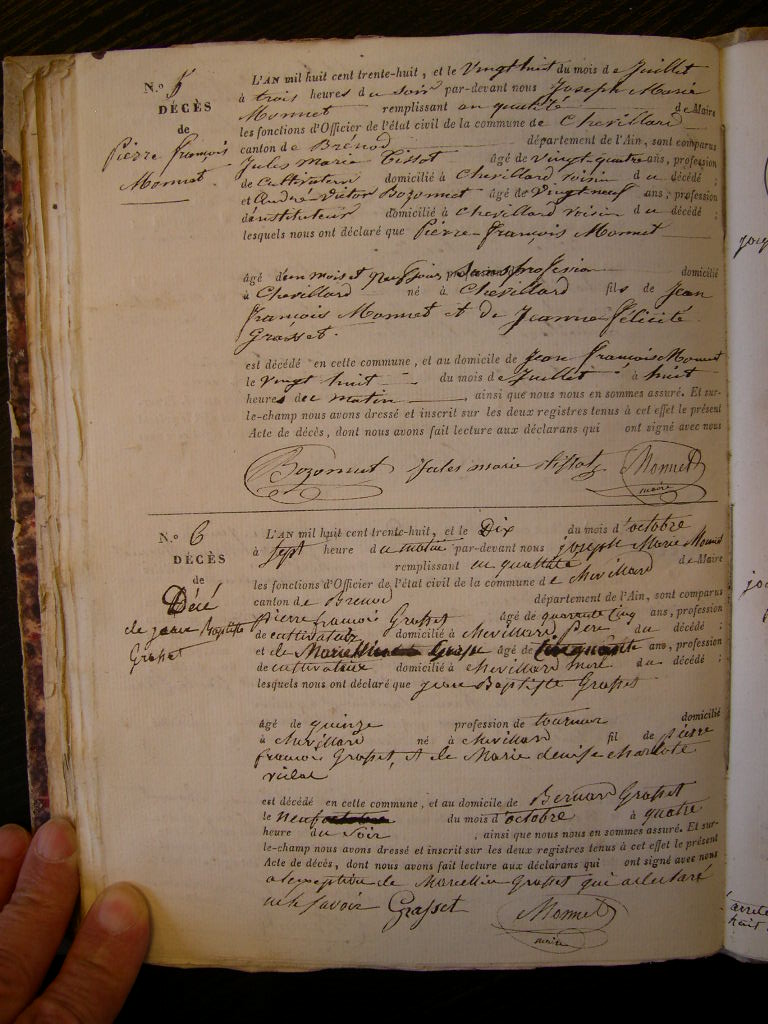 N.º 5
DÉCÈS
de
Pierre françois
Monnet
L'AN mil huit cent trente-huit, et le Vingt huit du mois de Juillet
à trois heures du soir par-devant nous Joseph Marie
Monnet remplissant en qualité de Maire
les fonctions d'Officier de l'état civil de la commune de Chevillard
canton de Brénod département de l'Ain, sont comparus
Jules marie Tissot âgé de vingt quatre ans, profession
de Cultivateur domicilié à Chevillard voisin du décédé ;
et André-Victor Bozonnet âgé de Vingt neuf ans, profession
d'instituteur domicilié à Chevillard voisin du décédé ;
lesquels nous ont déclaré que Pierre-françois Monnet
âgé d'un mois et neuf jours profession Sans profession domicilié
à Chevillard né à Chevillard fils de Jean
françois Monnet et de Jeanne félicité
Grasset.
est décédé en cette commune, et au domicile de Jean françois Monnet
le Vingt huit du mois de Juillet à huit
heures du matin, ainsi que nous nous en sommes assuré. Et sur-
le-champ nous avons dressé et inscrit sur les deux registres tenus à cet effet le présent
Acte de décès, dont nous avons fait lecture aux déclarans qui ont signé avec nous
Bozonnet Jules marie tissot Monnet
maire
N.º 6
DÉCÈS
de
Décé
de jean Baptiste
Grasset
L'AN mil huit cent trente-huit, et le Dix du mois d'octobre
à Sept heure du matin par-devant nous joseph Marie Monnet
remplissant en quallité de Maire
les fonctions d'Officier de l'état civil de la commune de chevillard
canton de Brenod département de l'Ain, sont comparus
Pierre francois Grasset âgé de quarente Cinq ans, profession
de cultivateur domicilié à chevillard Père du décédé ;
et de âgé de ans, profession
de cultivateur domicilié à chevillard du décédé ;
lesquels nous ont déclaré que jean Baptiste Grasset
âgé de quinze profession de tourneur domicilié
à chevillard né à chevillard fil de pierre
francois Grasset, et de Marie denise charlote
vielae
est décédé en cette commune, et au domicile de Bernard Grasset
le Neuf du mois d'octobre à quatre
heure du Soir, ainsi que nous nous en sommes assuré. Et sur-
le-champ nous avons dressé et inscrit sur les deux registres tenus à cet effet le présent
Acte de décès, dont nous avons fait lecture aux déclarans qui ont signé avec nous
a lexception de Marcellin Grasset qui a declaré
ne le savoir Grasset Monnet
maire